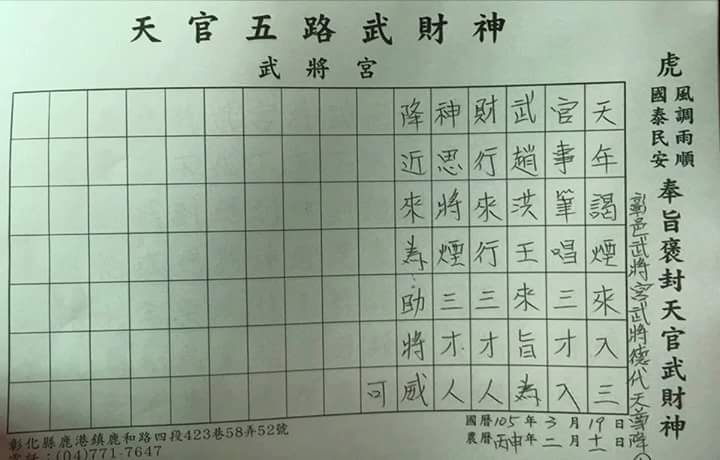 天官五路武財神
武將宮
虎
風調雨順
國泰民安
奉旨褒封天官武財神
彰邑武將宮武將德代天尊降
天年謁煙來入三
官事筆唱三才入
武趙洪王來旨為
財行來行三才人
神思將煙三才人
降近來為助將威
可
國曆105年3月19日
農曆丙申年二月十一日
彰化縣鹿港鎮鹿和路四段423巷58弄52號
電話:(04)771-7647